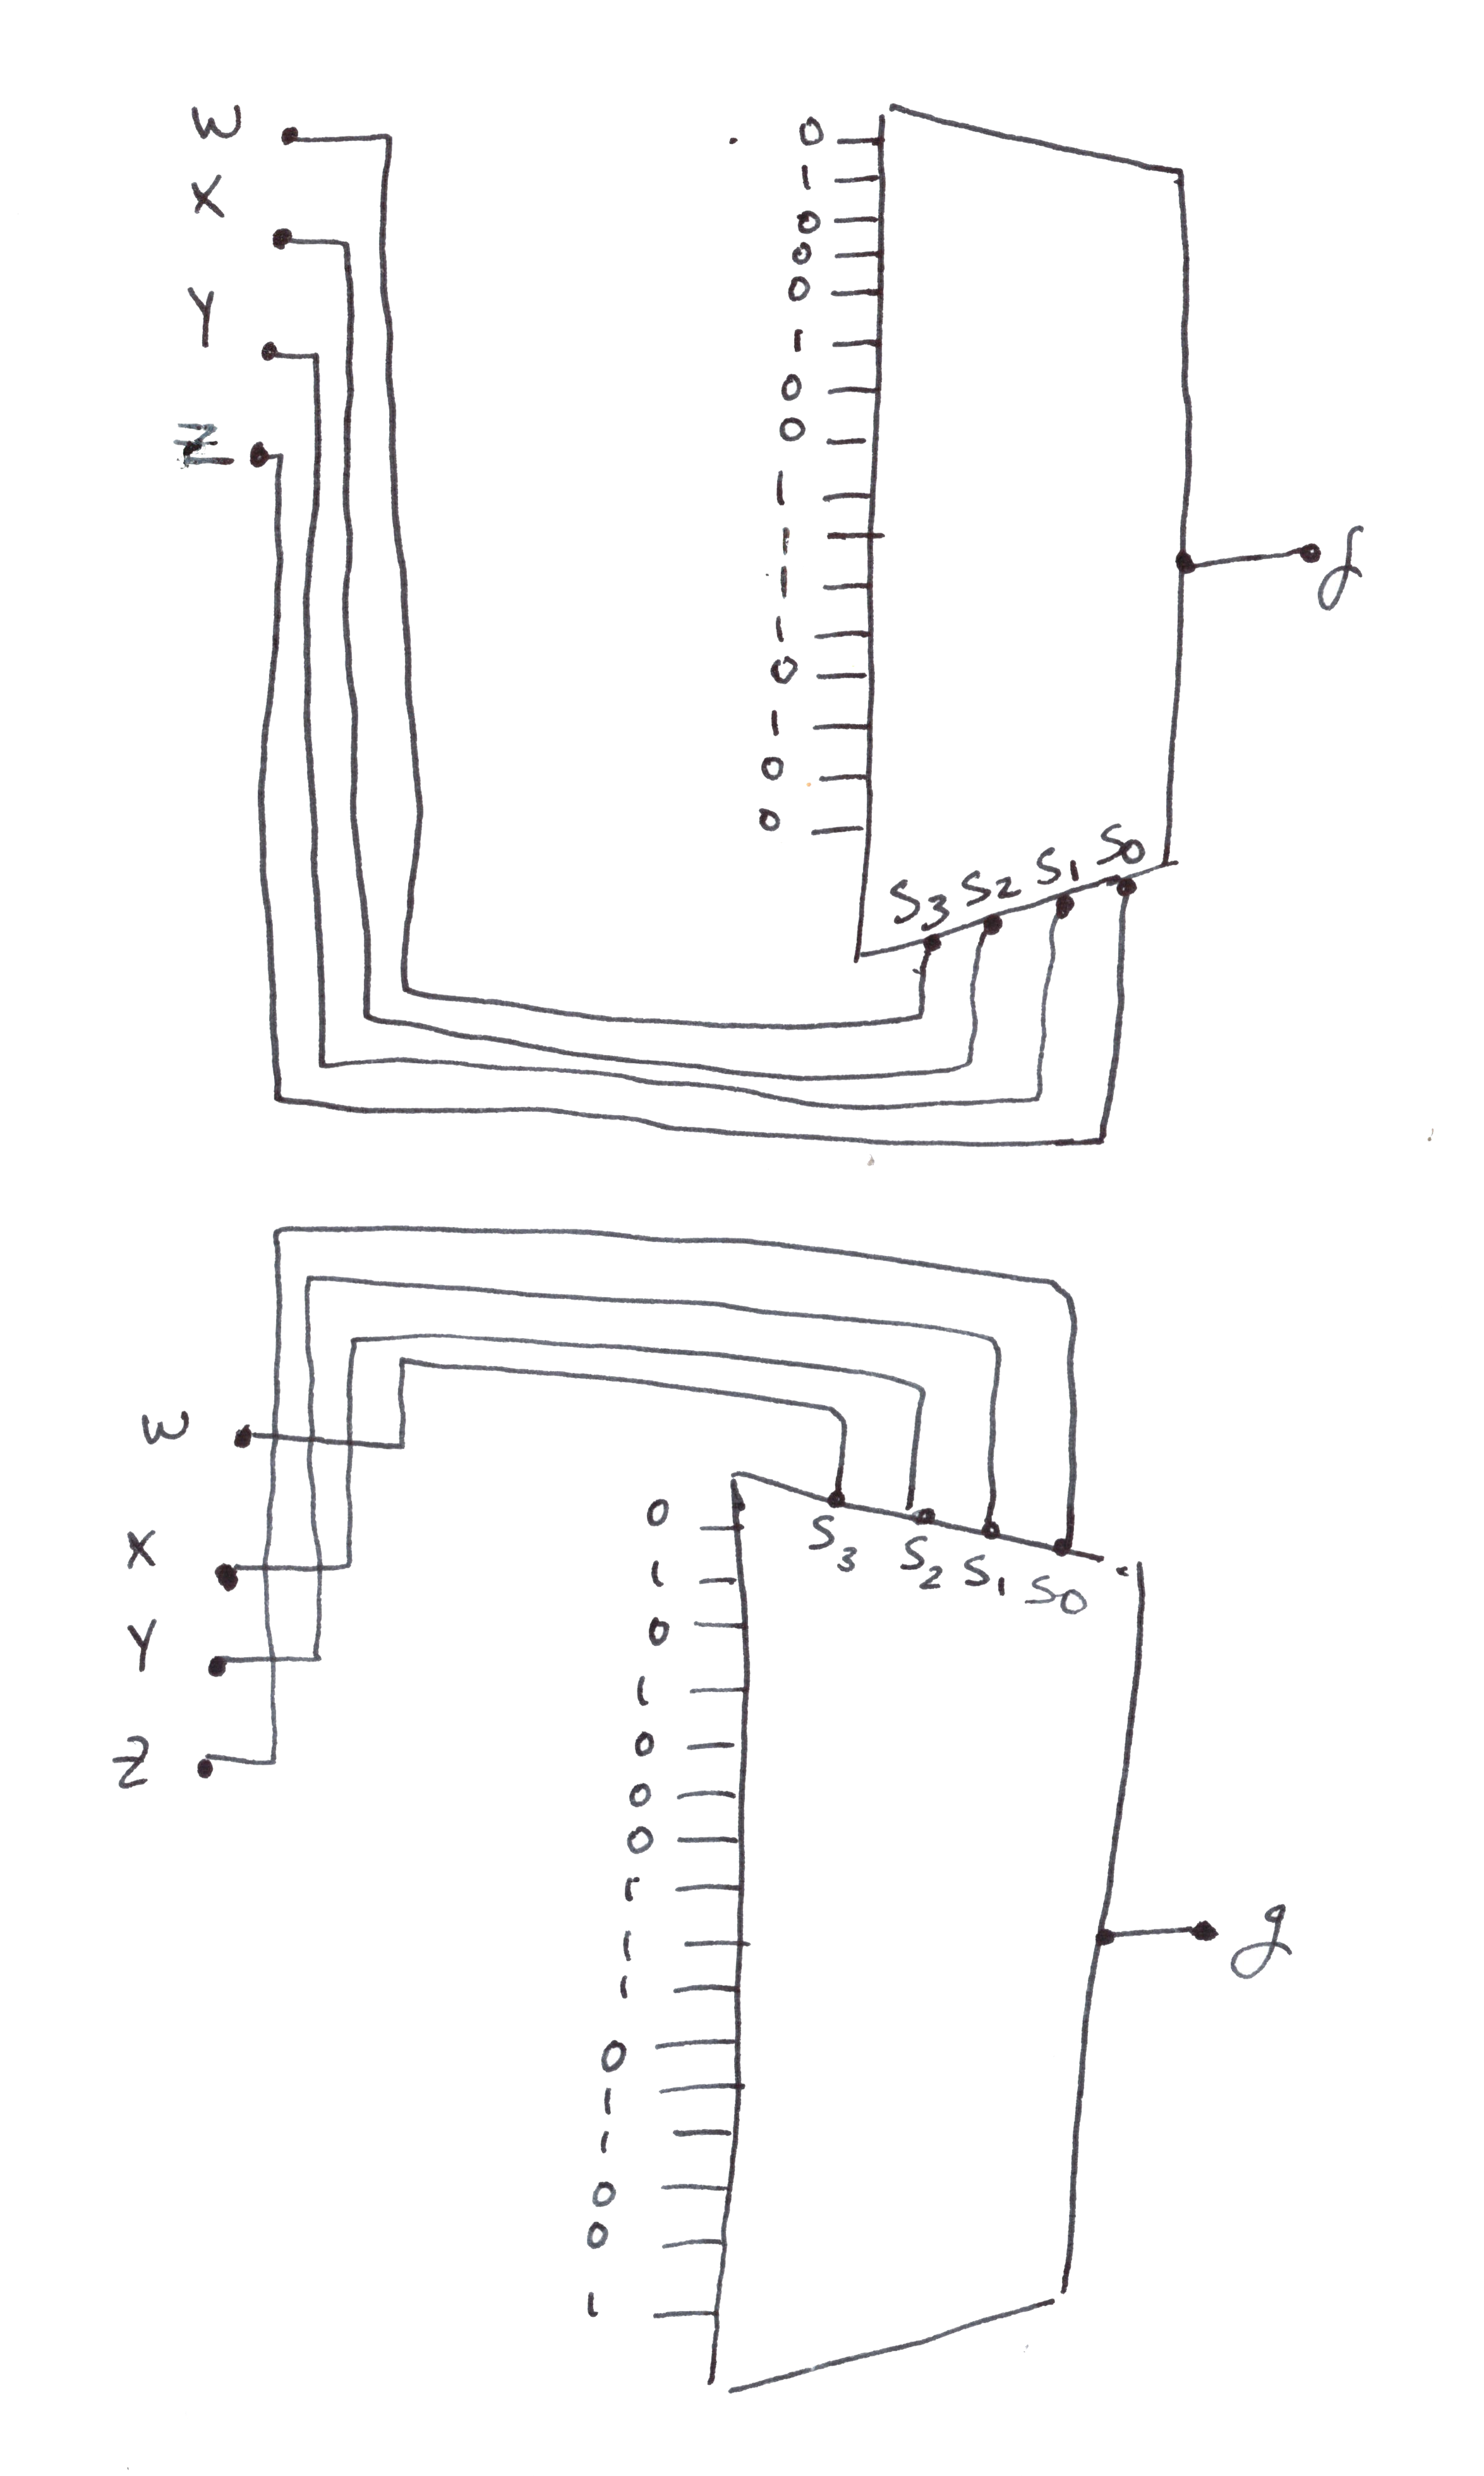 W
X
Y
Z
0
1
0
0
0
1
0
0
1
1
1
1
0
1
0
0
S3 S2 S1 S0
f
W
X
Y
Z
0
1
0
1
0
0
0
1
1
1
0
1
1
0
0
1
S3 S2 S1 S0
g